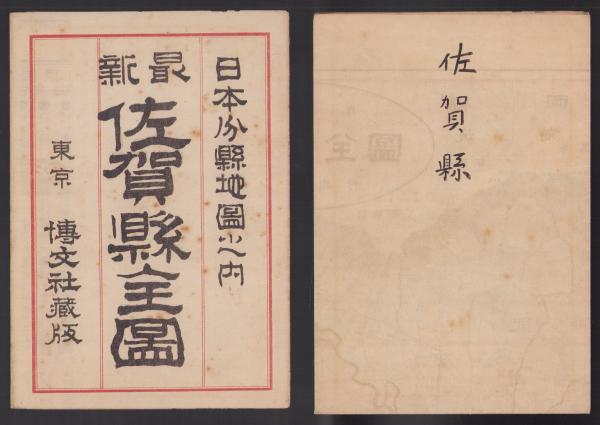 日本分縣地圖之内
最新
佐賀縣全圖
東京 博文社藏版
佐賀縣
全圖